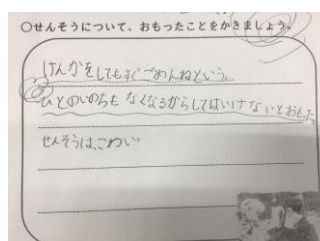 ○せんそうについて、おもったことをかきましょう。
けんかをしてもすぐごめんねという。
ひとのいのちも なくなるからしてはいけないとおもた。
せんそうは、こわい。